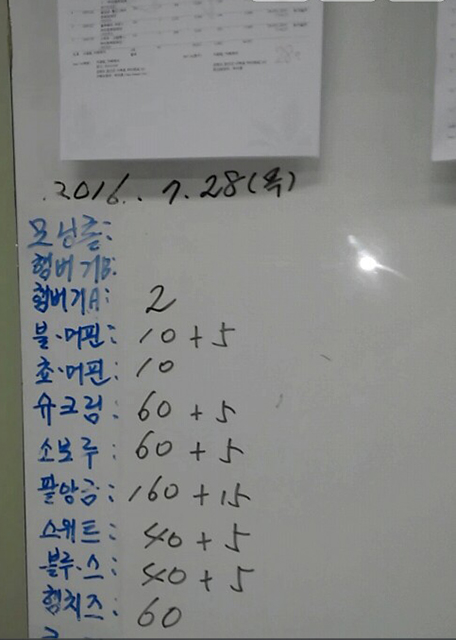 .2016.. 7.28(목)
모닝롤:
햄버거B:
햄버거A: 2
블·머핀: 10+5
쵸·머핀: 10
슈크림: 60+5
소보루: 60+5
팥앙금: 160+15
스위트: 40+5
블루·스: 40+5
햄치즈: 60